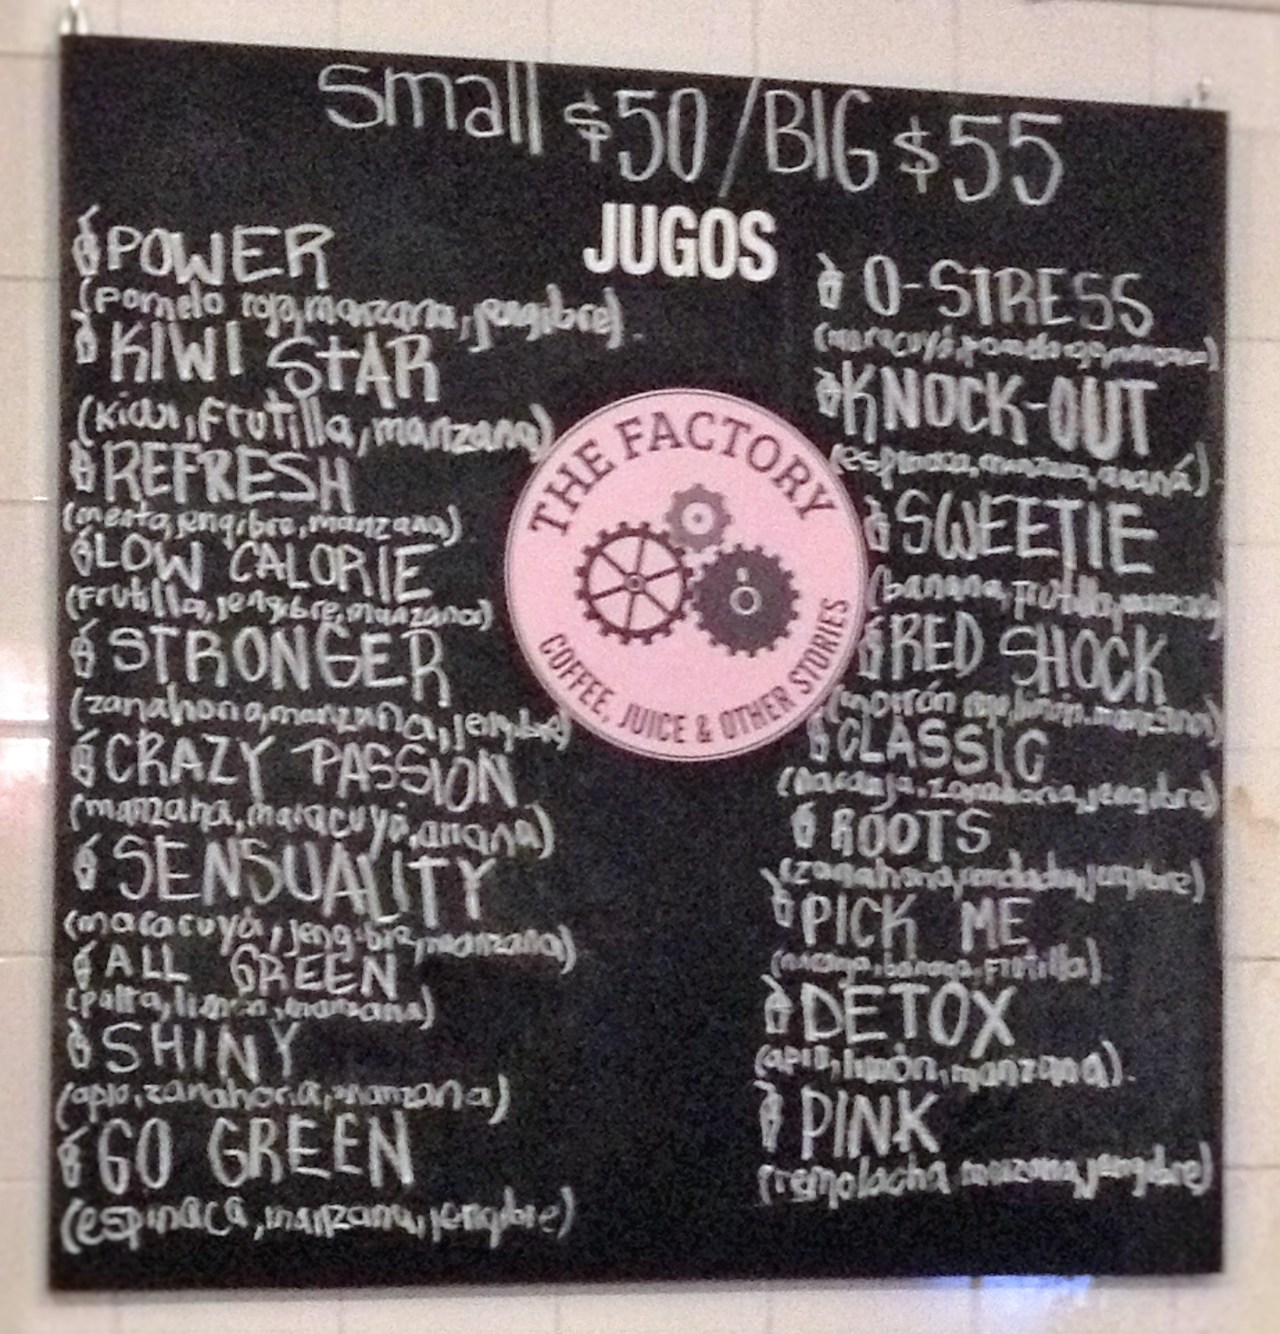 small $50/BIG $55
JUGOS
POWER
(pomelo rojo, manzana, jengibre).
KIWI StAR
(kiwi, frutilla, manzana)
REFRESH
(menta, jengibre, manzana)
LOW CALORIE
(frutilla, jengibre, manzana)
STRONGER
(zanahoria, manzana, jengibre)
CRAZY PASSION
(manzana, maracuyá, anana)
SENSUALITY
(maracuyá, jengibre, manzana)
ALL GREEN
(palta, limón, manzana)
SHINY
(apio, zanahoria, manzana)
GO GREEN
(espinaca, manzana, jengibre)
THE FACTORY
COFFEE, JUICE & OTHER STORIES
O-STRESS
(maracuyá, pomelo rojo, manzana)
KNOCK-OUT
(espinaca, manzana, ananá).
SWEETIE
(banana, frutilla, manzana)
RED SHOCK
(morrón rojo, limón, manzana)
CLASSIC
(naranja, zanahoria, jengibre)
ROOTS
(zanahoria, jengibre)
PICK ME
(naranja, banana, frutilla).
DETOX
(apio, limón, manzana).
PINK
(remolacha manzana, jengibre)